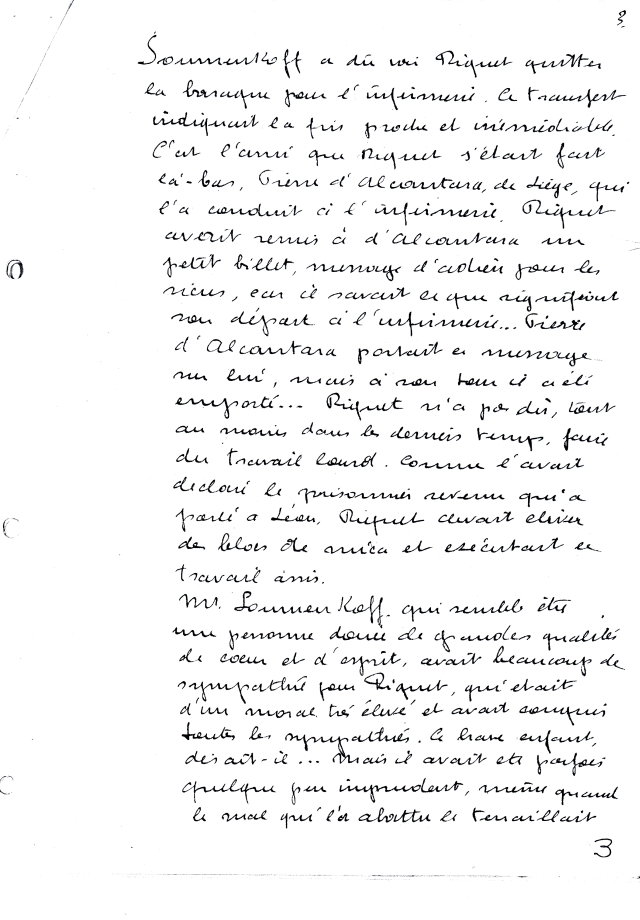 3.
Sommenkoff a dû voir Riquet quitter
la baraque pour l'infirmerie. Ce transfert
indiquait la fin proche et irrémédiable.
C'est l'ami que Riquet s'était fait
là-bas, Pierre d'Alcantara, de Liège, qui
l'a conduit à l'infirmerie. Riquet
avait remis à d'Alcantara un
petit billet, message d'adieu pour les
siens, car il savait ce que signifiait
son départ à l'infirmerie... Pierre
d'Alcantara portait ce message
sur lui, mais à son tour il a été
emporté... Riquet n'a pas dû, tout
au moins dans les derniers temps, faire
du travail lourd. Comme l'avait
déclaré le prisonnier revenu qui a
parlé à Léon, Riquet devait cliver
des blocs de mica et exécutait ce
travail assis.
Mr. Sommenkoff qui semble être
une personne douée de grandes qualités
de coeur et d'esprit, avait beaucoup de
sympathie pour Riquet, qui était
d'un moral très élevé et avait conquis
toutes les sympathies. Ce brave enfant,
disait-il... Mais il avait été parfois
quelque peu imprudent, même quand
le mal qui l'a abattu le tenaillait
3